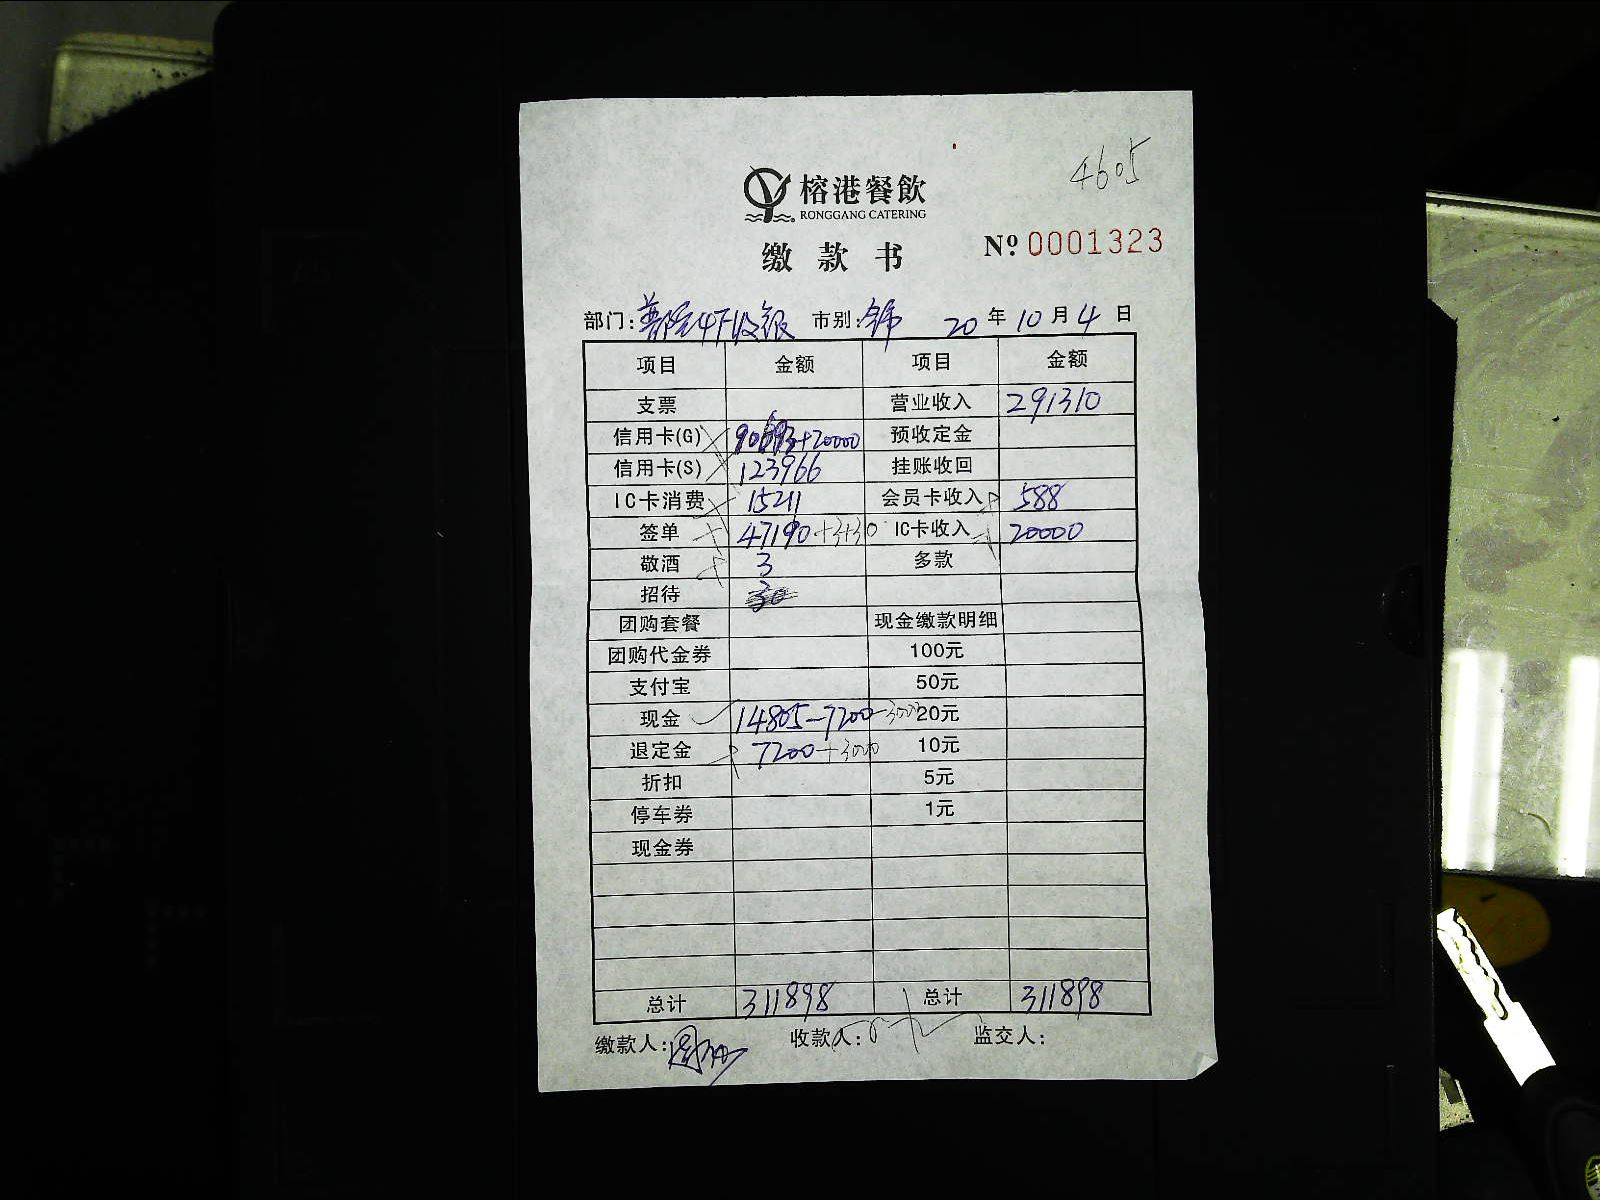 4605
榕港餐飲
RONGGANG CATERING
缴款书
Nº 0001323
部门: 市别: 20年10月4日
项目 金额 项目 金额
支票 营业收入 291310
信用卡(G) +20000 预收定金
信用卡(S) 123966 挂账收回
IC卡消费 15211 会员卡收入 588
签单 47190+3+30 IC卡收入 20000
敬酒 3 多款
招待
团购套餐 现金缴款明细
团购代金券 100元
支付宝 50元
现金 14805-7200-3000 20元
退定金 7200+3000 10元
折扣 5元
停车券 1元
现金券
总计 311898 总计 311898
缴款人: 收款人: 监交人: